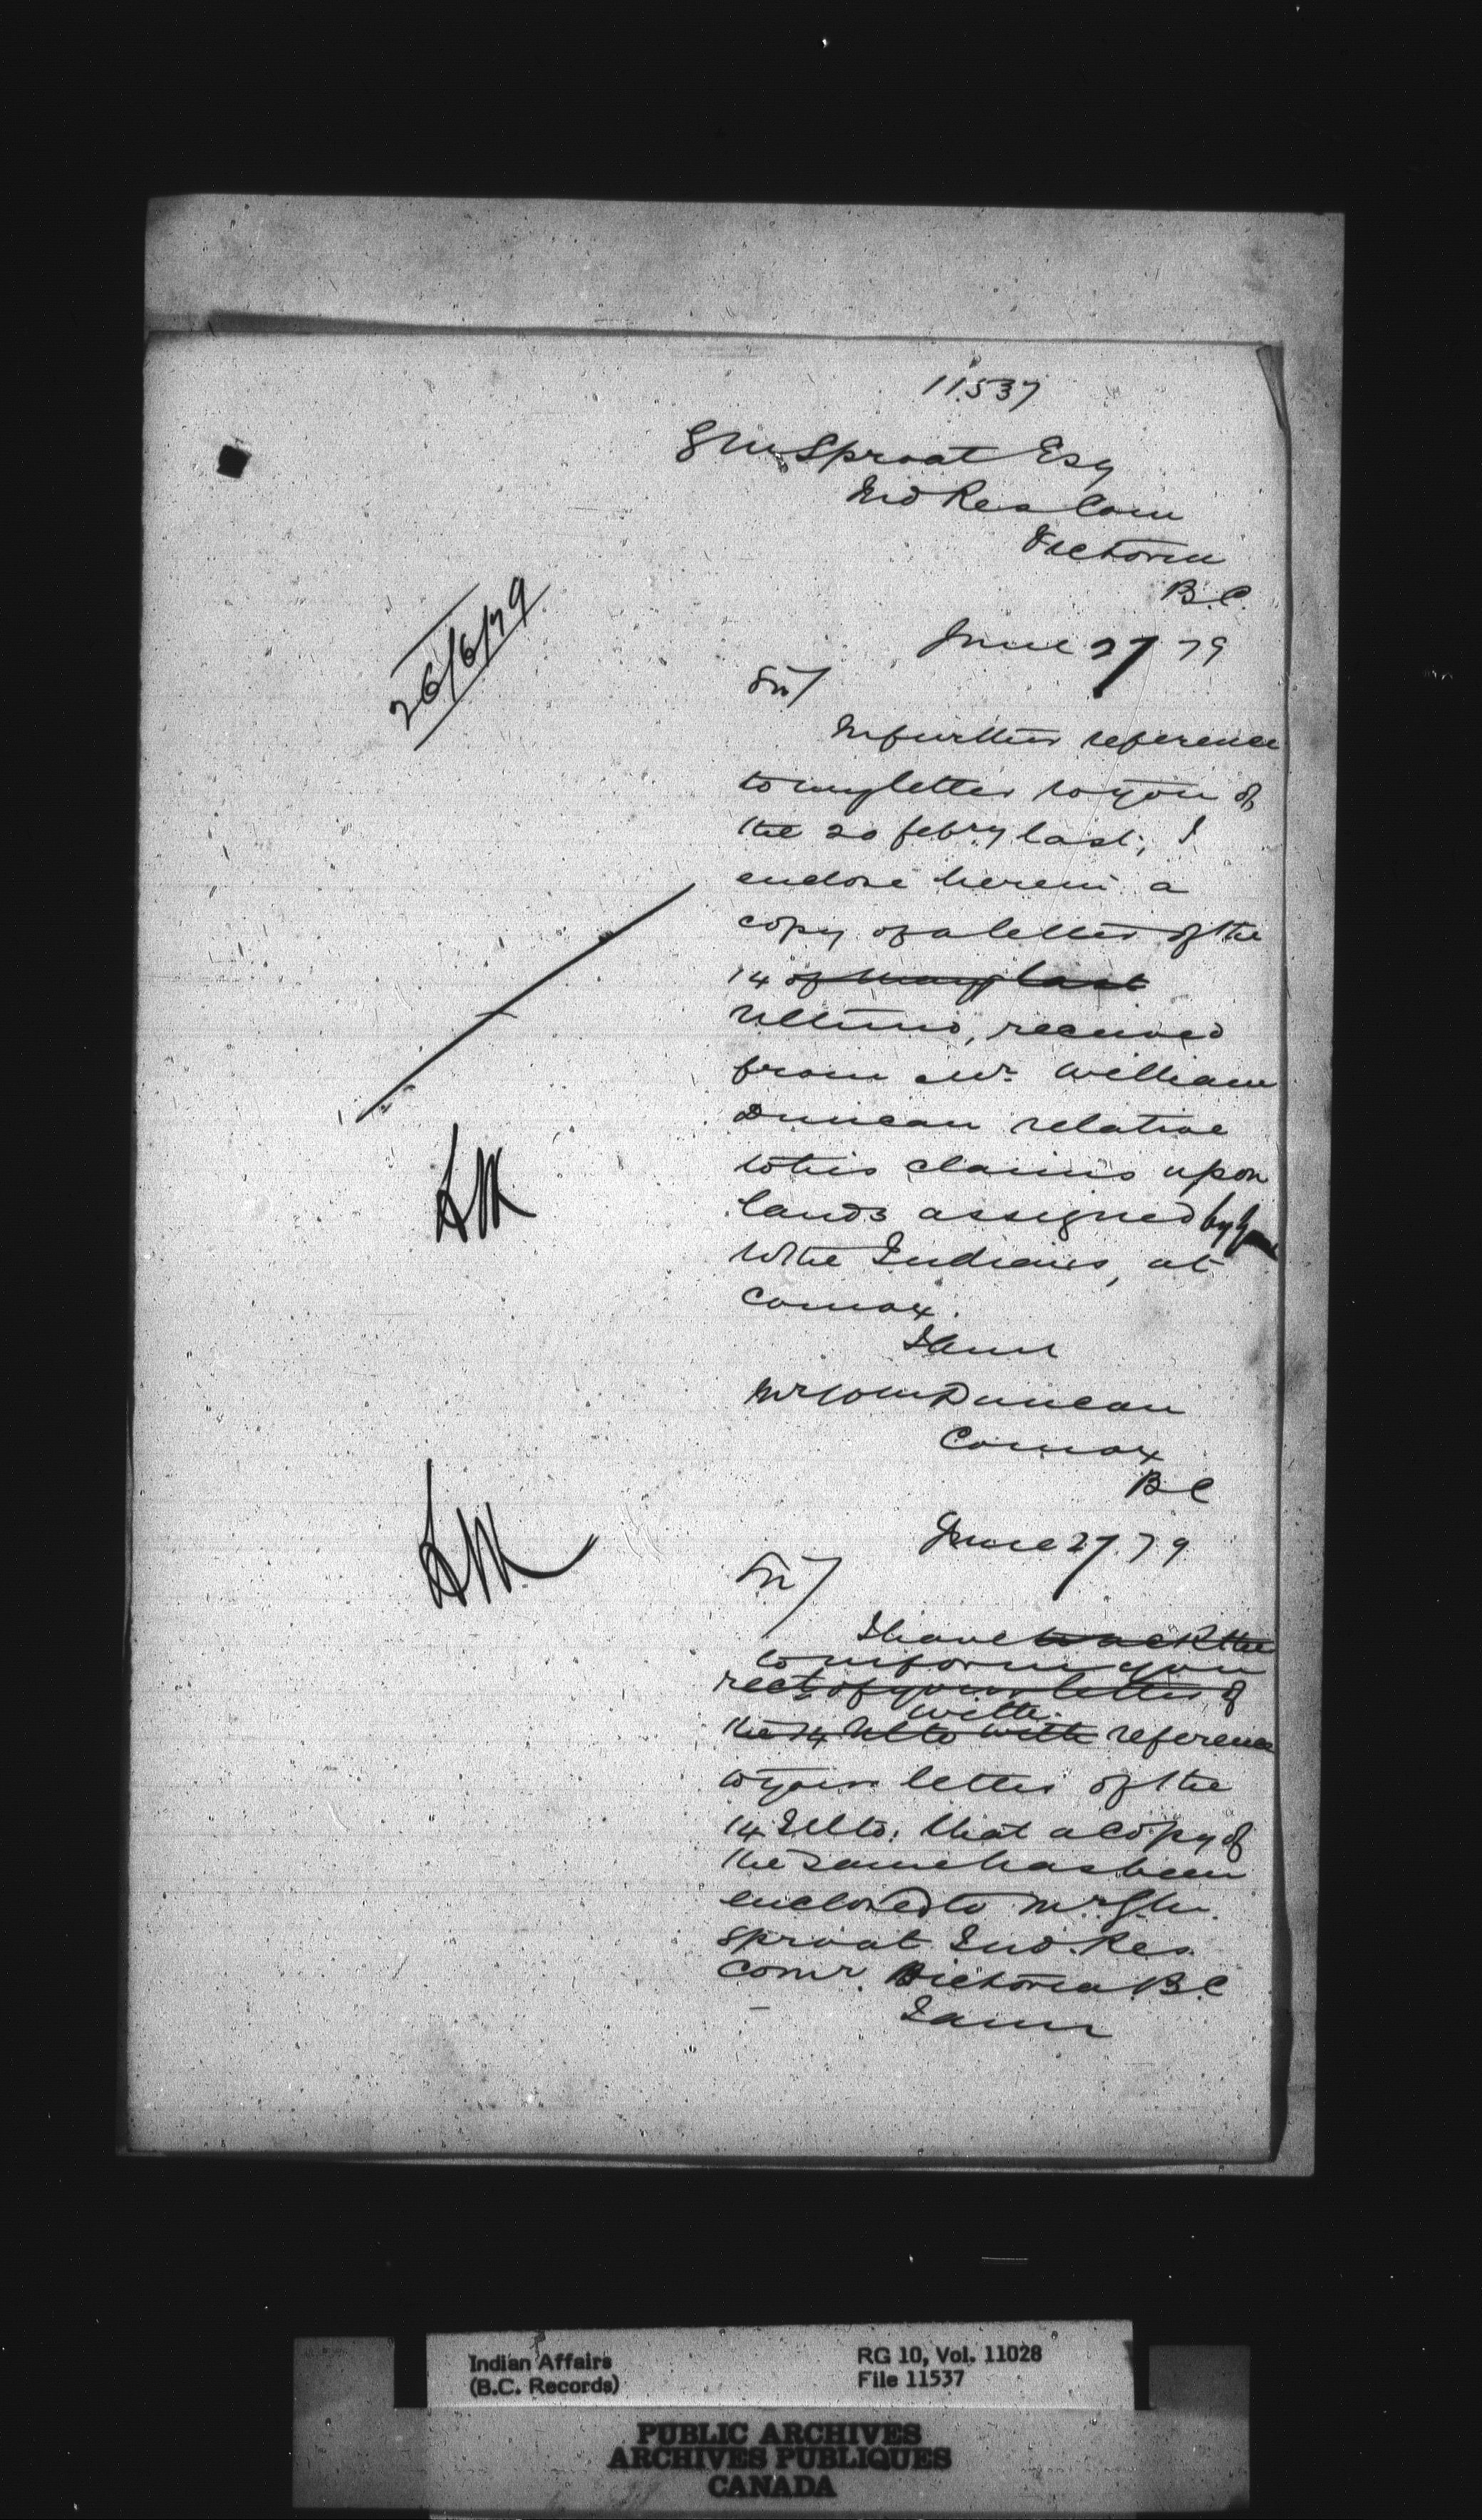 11537
G M Sproat Esq
Ind Res Com
Victoria
B.C.
26/6/79
June 27 79
Sir/
In further reference
to my letter to you of
the 20 Febry last, I
enclose herein a
copy of a letter of the
14 of May last
Ultimo, received
from Mr. William
Duncan relative
to his claims upon
lands assigned by you
to the Indians, at
Comox.
I am
Mr Wm Duncan
Comox
B C
June 27. 79
Sir/
I have to ack the
to inform you
rect of your letter of
with
the 14 Ulto with reference
to your letter of the
14 Ulto: that a copy of
the same has been
enclosed to Mr G M.
Sproat Ind. Res
Comr. Victoria B.C
I am
Indian Affairs
(B.C. Records)
RG 10, Vol. 11028
File 11537
PUBLIC ARCHIVES
ARCHIVES PUBLIQUES
CANADA